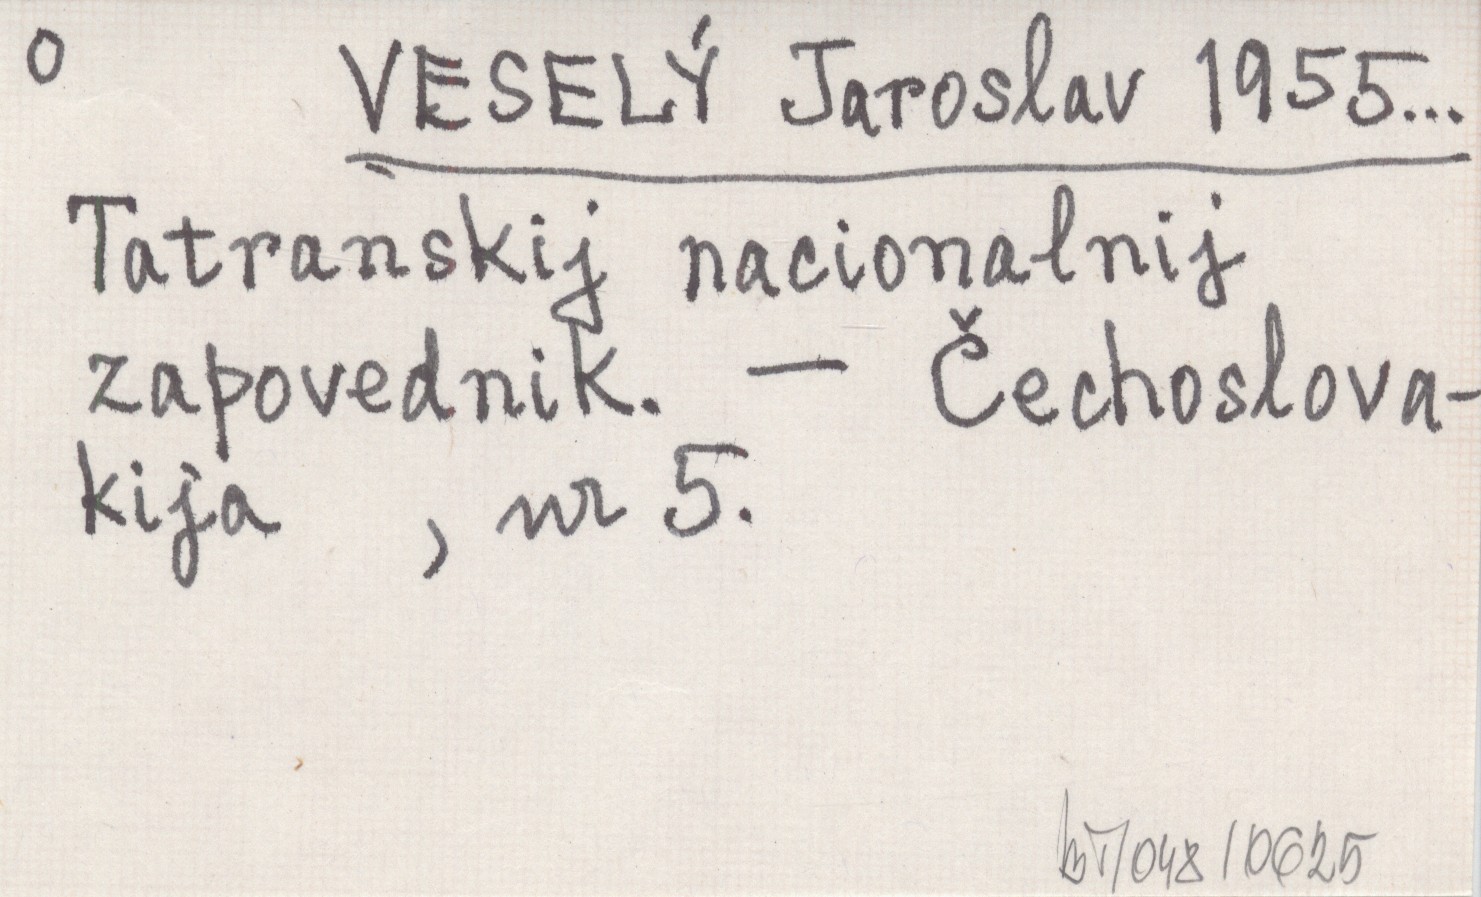 O VESELÝ Jaroslav 1955...
Tatranskij nacionalnij
zapovednik. — Čechoslova-
kija , nr 5.
bT/048/0625